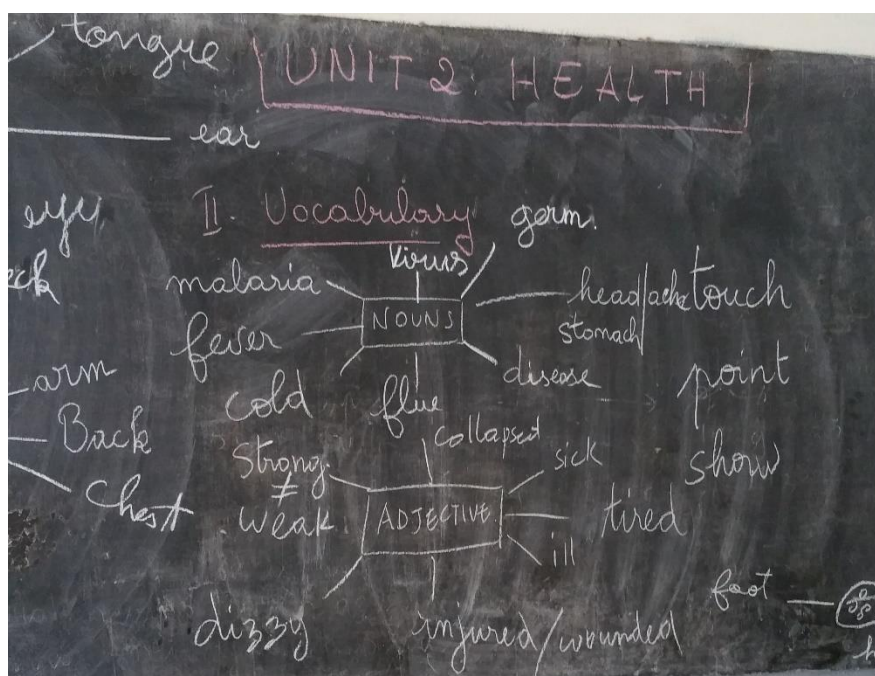 tongue
UNIT 2: HEALTH
ear
II. Vocabulary
germ.
virus
malaria
NOUNS
head/ache
stomach/
touch
fever
disease
point
arm
cold
flue
Back
collapsed
strong
sick
show
≠
Chest
weak
ADJECTIVE
tired
ill
foot
dizzy
injured/wounded